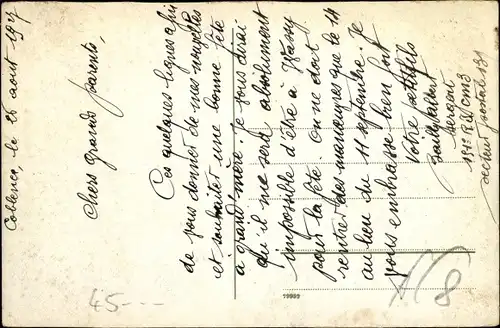 Coblence, le 25 aout 1927
chers grands parents,
Ces quelques lignes afin
de vous donner de mes nouvelles
et souhaiter une bonne fête
a grand'mère. Je vous dirai
qu'il me sera absolument
impossible d'être à Wassy
pour la fête. On ne doit
rentrer des manœuvres que le 14
au lieu du 11 septembre. Je
vous embrasse bien fort
votre petit fils
sergent
secteur postal 131
45---
8
19989